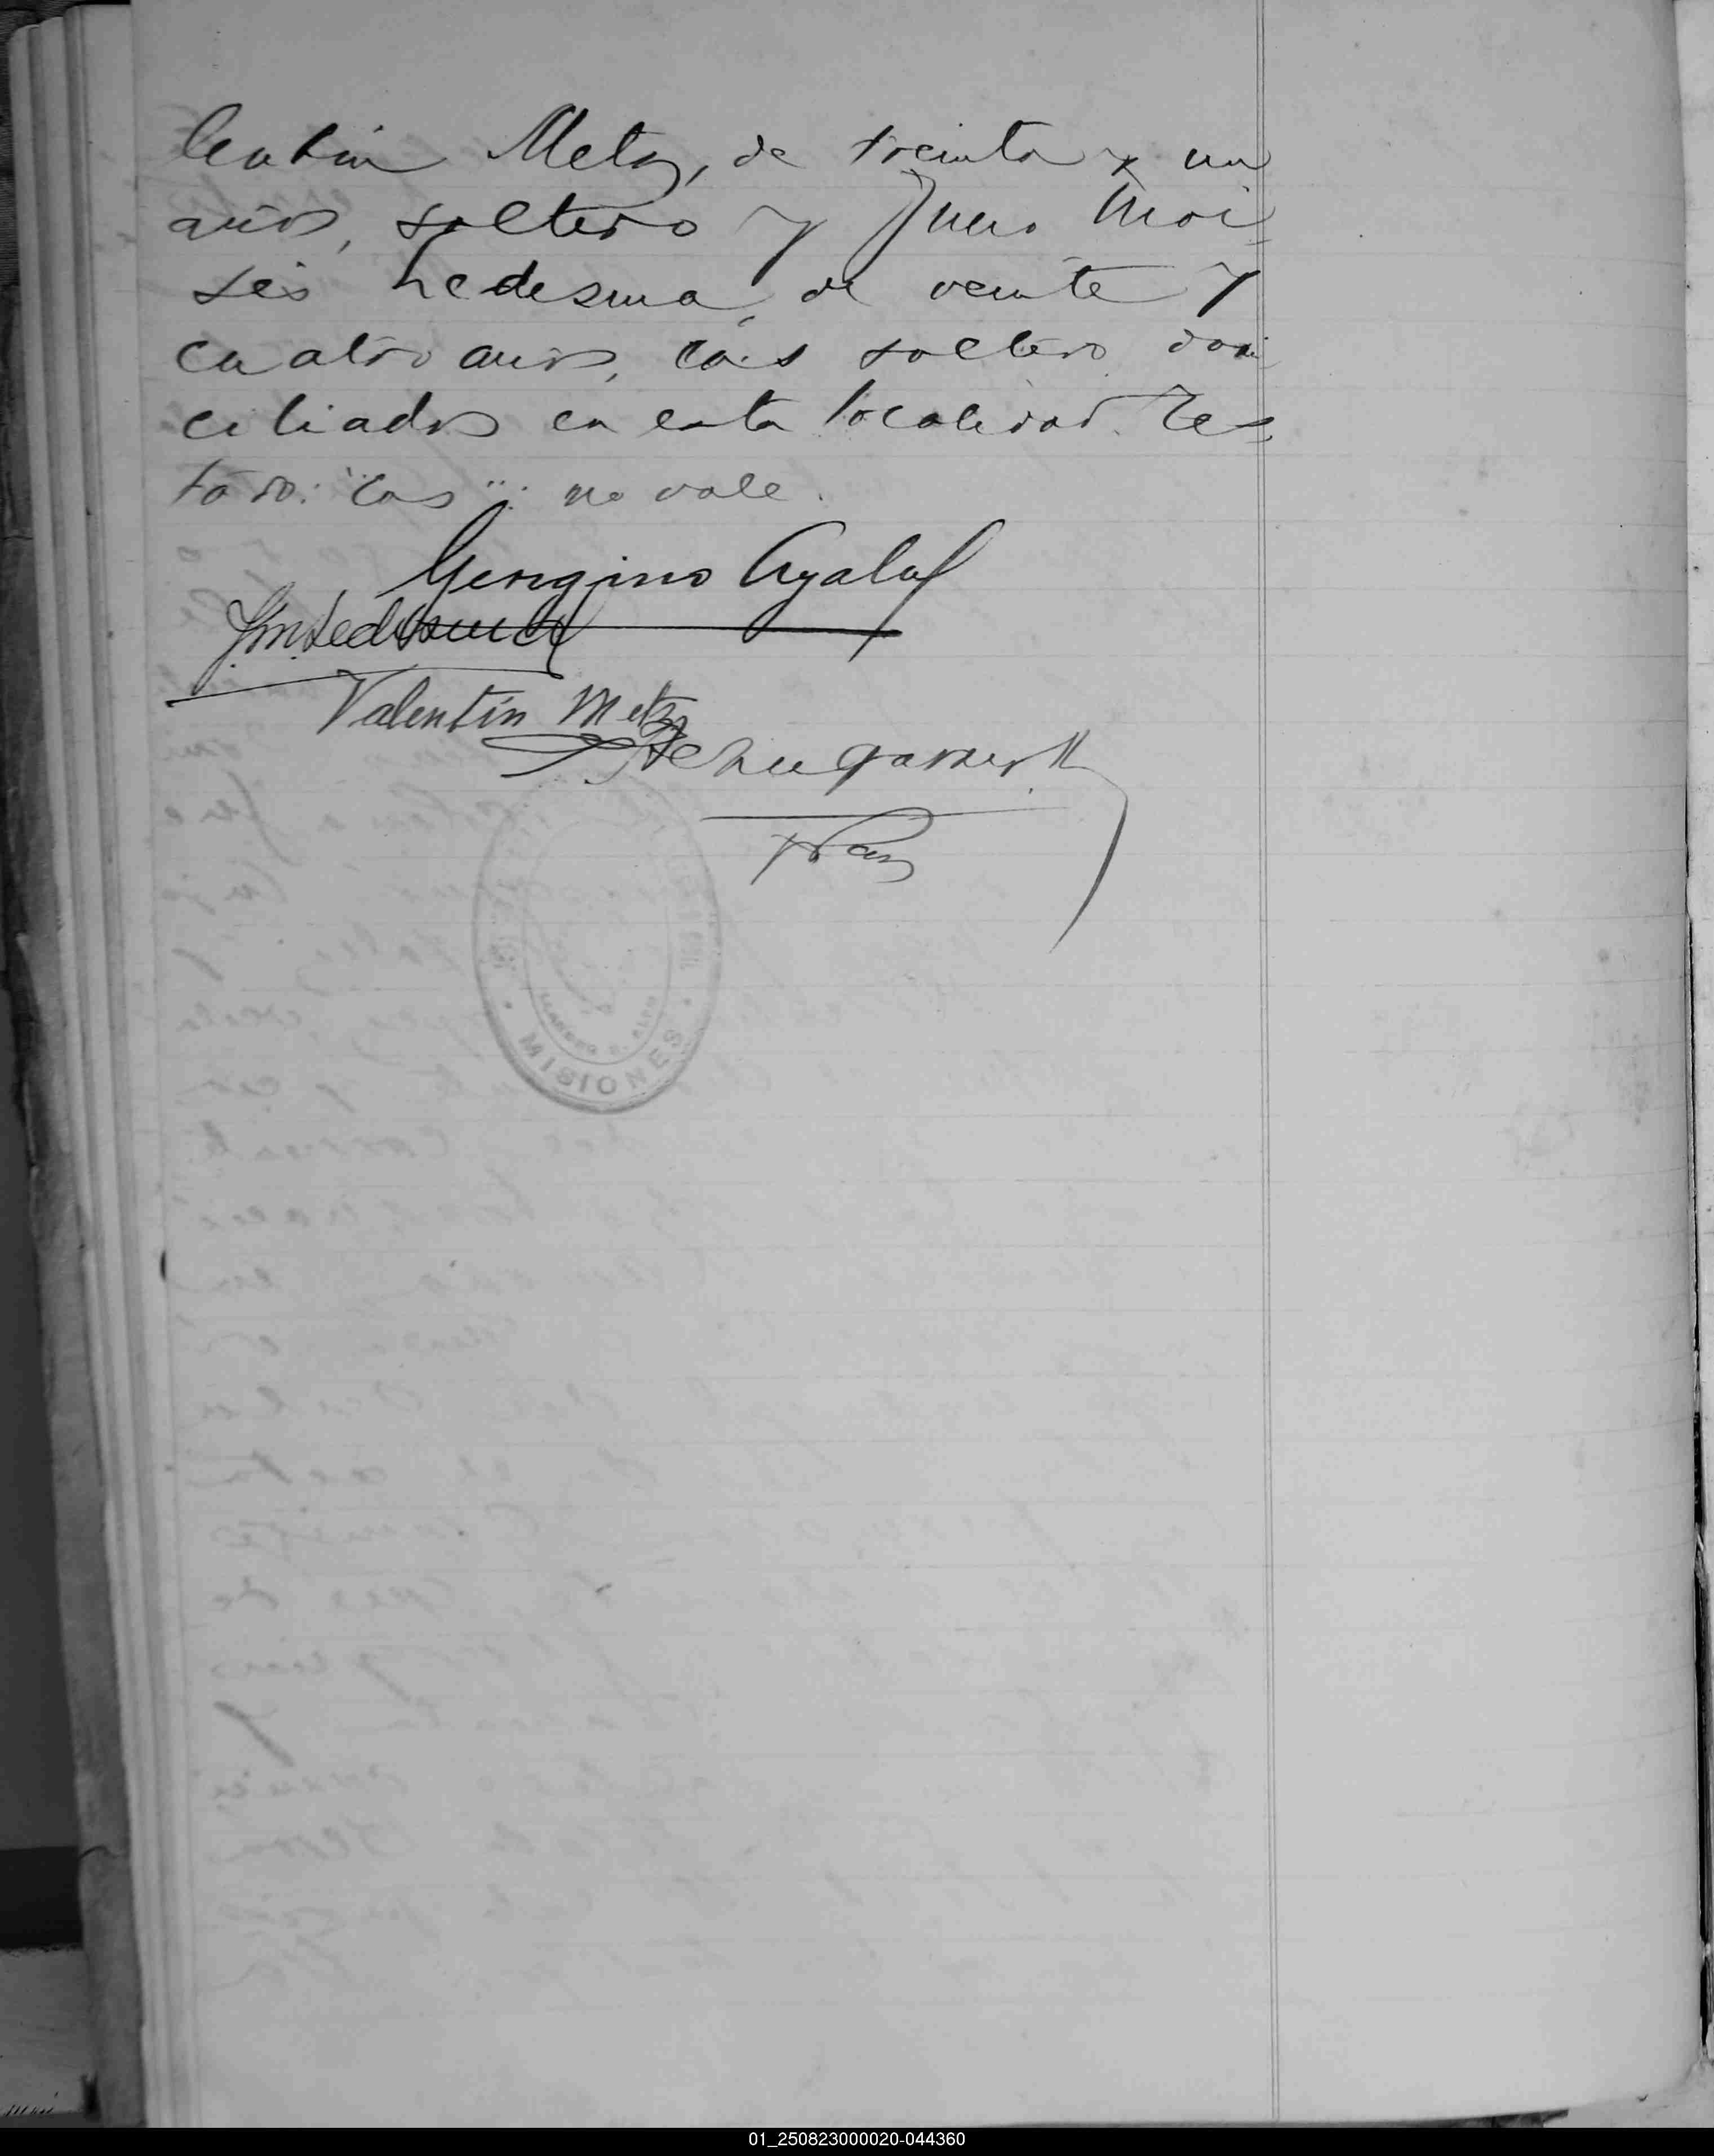 lentin Metz, de treinta y un
años, soltero y Juan Moi
sés Ledesma, de veinte y
cuatro años, cas soltero domi
ciliados en esta localidad. Tes
tado: "cas": no vale.
Gengino Ayala
J. M. Ledesma
Valentín Metz
MISIONES
01_250823000020-044360